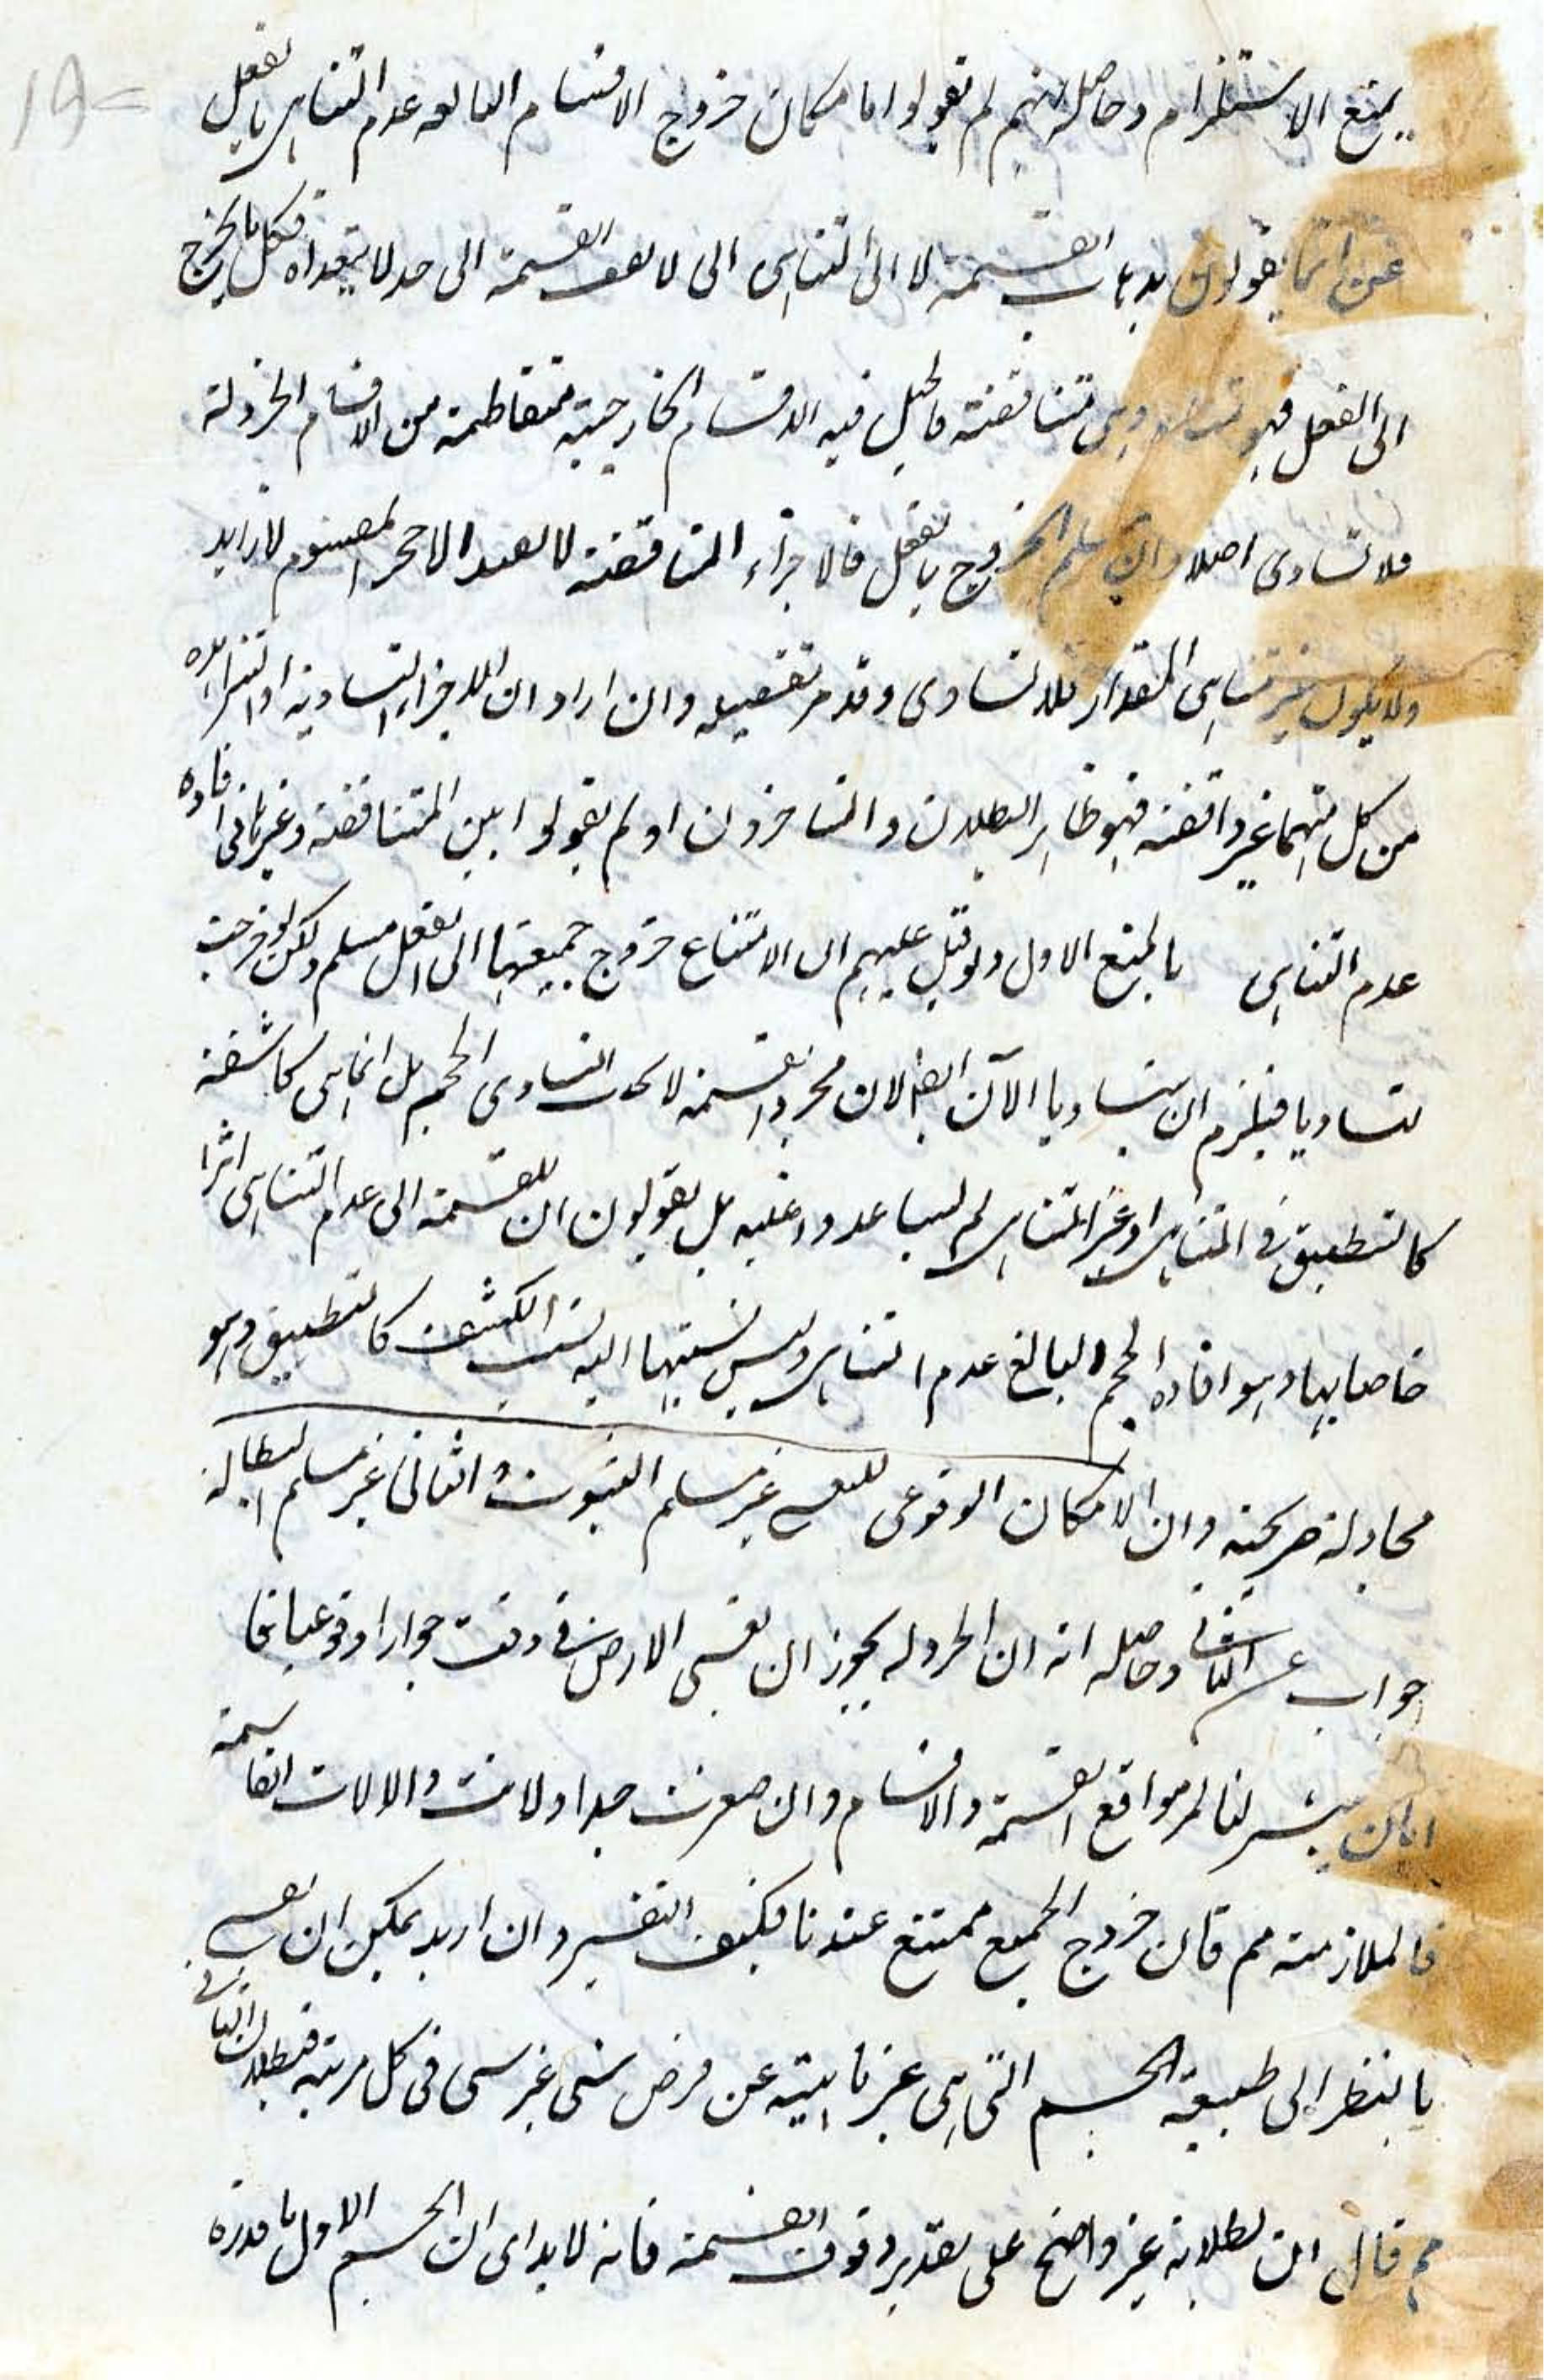 يمنع الاستلزام وحاصله انهم لم يقولوا امكان خروج الاقسام البالغة عدم التناهى بالفعل
حتى انما يقولون بذهاب القسمة لا الى التناهى الى لا يقف القسمة الى حد لا يتعداه فكل ما يخرج
الى الفعل فهو متناه وهى متناقصة فالجبل فيه الاقسام الخارجية متعاظمة من الاقسام الخردلة
فلا تساوى اصلا وان سلم الخروج بالفعل فالاجزاء المتناقصة لا تفيد الا حجم المقسوم لا زايد
ولا يكون غير متناهى المقدار فلا تساوى وقد مر تفصيله وان اراد ان الاجزاء المتساوية او المتزايدة
من كل منهما غير واقفة فهو ظاهر البطلان والمتاخرون اذ لم يقولوا بين المتناقصة وغيرها فى افادة
عدم التناهى بالمنع الاول ولو قيل عليهم ان الامتناع خروج جميعها الى الفعل مسلم ولكن لو خرجت
لتساويا فيلزم ان يتساويا الآن ايضا لان مجرد القسمة لا يحدث التساوى الحجم بل انما هى كاشفة
كالتطبيق فى المتناهى وغير المتناهى لم يساعدوا عليه بل يقولون ان للقسمة الى عدم التناهى اثرا
خاصا بها وهو افادة الحجم البالغ عدم التناهى وليس نسبتها اليه نسبة الكشف كالتطبيق وهو
مجادلة صريحة وان الامكان الوقوعى للبعض غير مسلم الثبوت والثانى غير مسلم البطالة
جواب عن الثانى وحاصله انه ان الخردلة يجوز ان تغشى الارض فى وقت جوازا وقوعيا بقا
اما ان يتيسر لنا لمر مواقع القسمة والاقسام وان صغرت جدا ولانت والالات القاسمة
فالملازمة مم فان خروج الجميع ممتنع عندنا فكيف التغشير وان اريد يمكن ان يغشى
بالنظر الى طبيعة الجسم التى هى غير نابية عن فرض شى غير شى فى كل مرتبة فبطلان الثانى
مم قال ان بطلانه غير واضح على تقدير وقوف القسمة فانه لا بد اى ان الجسم الاول ما قدره